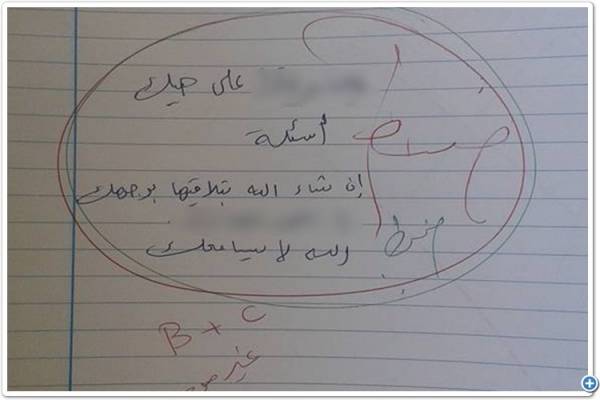 على هيك
أسئلة
إن شاء الله بتلاقيها بوجهك
الله لا يسامحك
B + C
غير